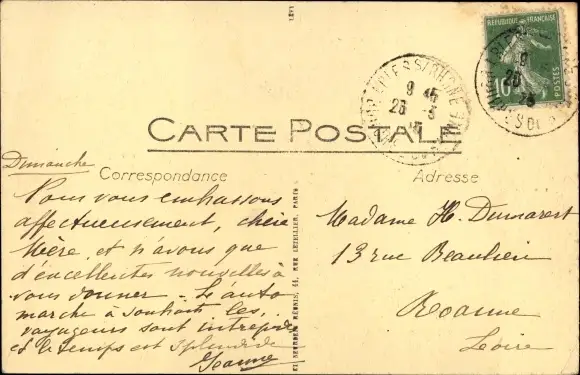 RÉPUBLIQUE FRANÇAISE
10
POSTES
ARLES S/RHONE
9 45
23 3
CARTE POSTALE
Correspondance
Adresse
Dimanche
Nous vous embrassons
affectueusement, chère
Mère, et n'avons que
d'excellentes nouvelles à
vous donner - L'auto
marche à souhaits les
voyageurs sont intrépides
et le temps est splendide
Jeanne
Madame H. Dumarest
13 rue Beaulieu
Roanne
Loire